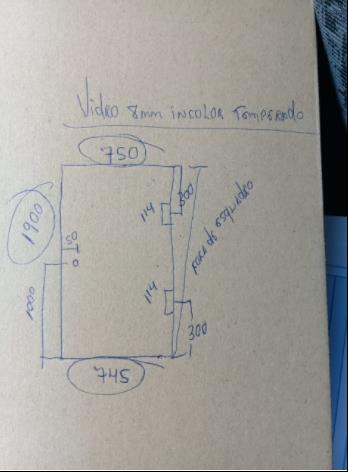 Vidro 8mm incolor Temperado
750
300
114
1900
50
fora de esquadro
0
114
1000
300
745